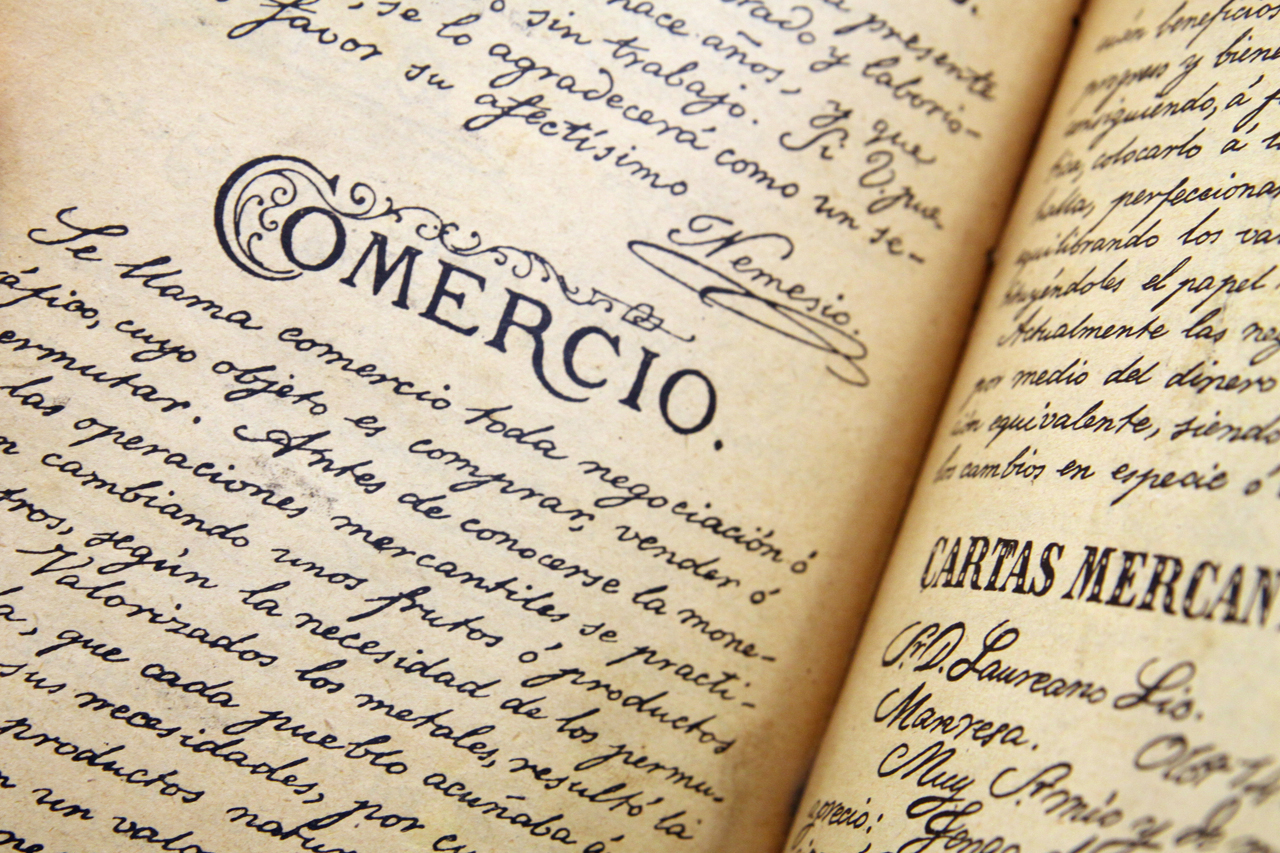 presente
rado y laborio-
hace años, y que
sin trabajo. Si V. pue-
se lo agradecerá como un se-
favor su afectísimo
Nemesio.
COMERCIO.
Se llama comercio toda negociación ó
áfico, cuyo objeto es comprar, vender ó
ermutar. Antes de conocerse la mone-
las operaciones mercantiles se practi-
n cambiando unos frutos ó productos
tros, según la necesidad de los permu-
Valorizados los metales, resultó la
a, que cada pueblo acuñaba á
sus necesidades, por
productos natur
n un valo
beneficios
progreso y biene
consiguiendo, á f
colocarlo á
halla, perfecciona
equilibrando los va
tuyéndoles el papel
Actualmente las neg
por medio del dinero
equivalente, siendo
los cambios en especie ó
CARTAS MERCAN
Sr. D. Laureano Lic.
Manresa.
Muy Sr. mío y de
aprecio: Tengo